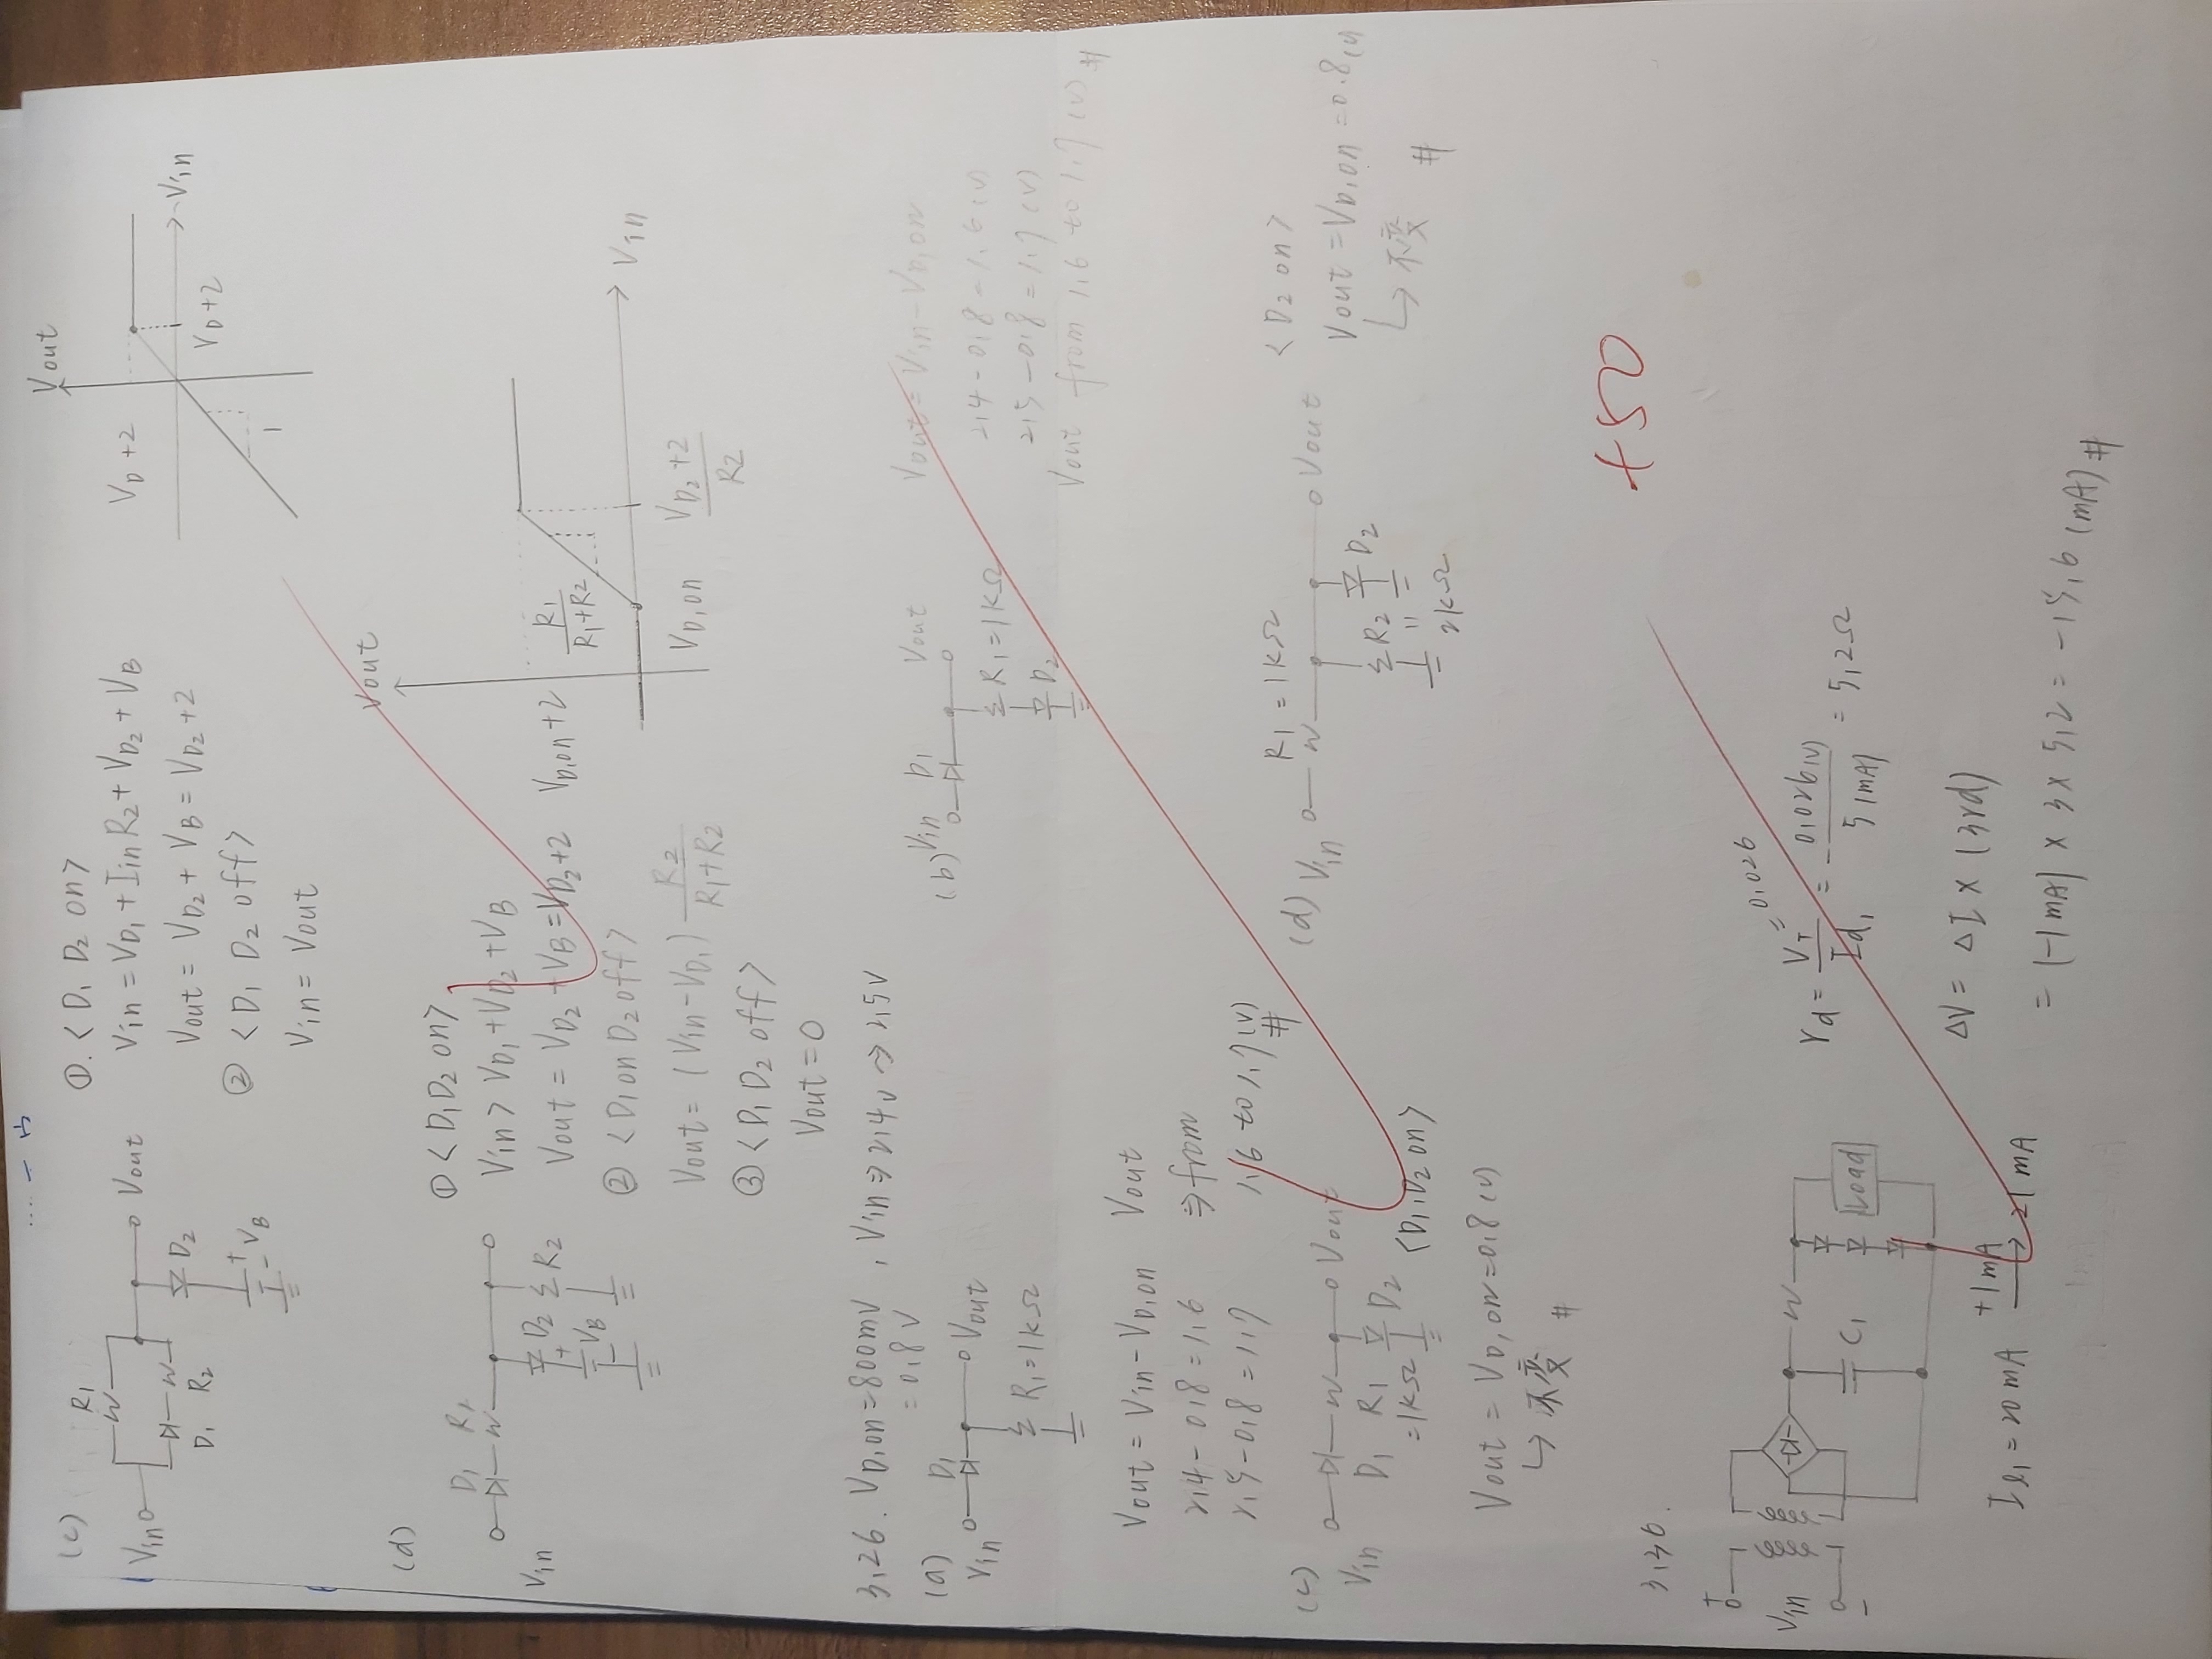 (c)
R₁
Vin
Vout
D₁ R₂
D₂
+
- VB
①. < D₁ D₂ on>
Vin = VD₁ + Iin R₂ + VD₂ + VB
Vout = VD₂ + VB = VD₂ +2
② < D₁ D₂ off>
Vin = Vout
Vout
VD +2
Vin
VD+2
1
(d)
D₁ R₁
Vin
D₂
R₂
+
VB
-
① < D₁D₂ on>
Vin > VD₁ + VD₂ + VB
Vout = VD₂ + VB = VD₂ +2
② < D₁on D₂off>
Vout = (Vin-VD₁) R₂/(R₁+R₂)
③ < D₁ D₂ off>
Vout = 0
Vout
VD,on +2
R₁/(R₁+R₂)
Vin
VD,on
(VD₂ +2)/R₂
3.26. VD,on = 800mV , Vin ⇒ 2.4v → 2.5V
= 0.8 V
(a)
D₁
Vin
Vout
R₁ = 1kΩ
Vout = Vin - VD,on
2.4 - 0.8 = 1.6
2.5 - 0.8 = 1.7
Vout
⇒ from
1.6 to 1.7 (V)
#
(b)
Vin D₁ Vout
R₁ = 1kΩ
D₂
Vout = Vin - VD,on
2.4 - 0.8 = 1.6 (V)
2.5 - 0.8 = 1.7 (V)
Vout from 1.6 to 1.7 (V) #
(c)
Vin
Vout
D₁ R₁ D₂
=1kΩ
<D₁,D₂ on>
Vout = VD,on = 0.8 (V)
↳ 不变 #
(d)
Vin
R₁ = 1kΩ
Vout
R₂ D₂
=
2kΩ
< D₂ on >
Vout = VD,on = 0.8 (V)
↳ 不变 #
+50
3.36.
+
Vin
-
C₁
Load
rd = VT/Id₁ = 0.026(V)/5(mA) = 5.2Ω
= 0.026
Iℓ₁ = 20 mA +1mA → 21 mA
ΔV = ΔI × (3rd)
= (-1mA) × 3 × 5.2 = -15.6 (mA) #